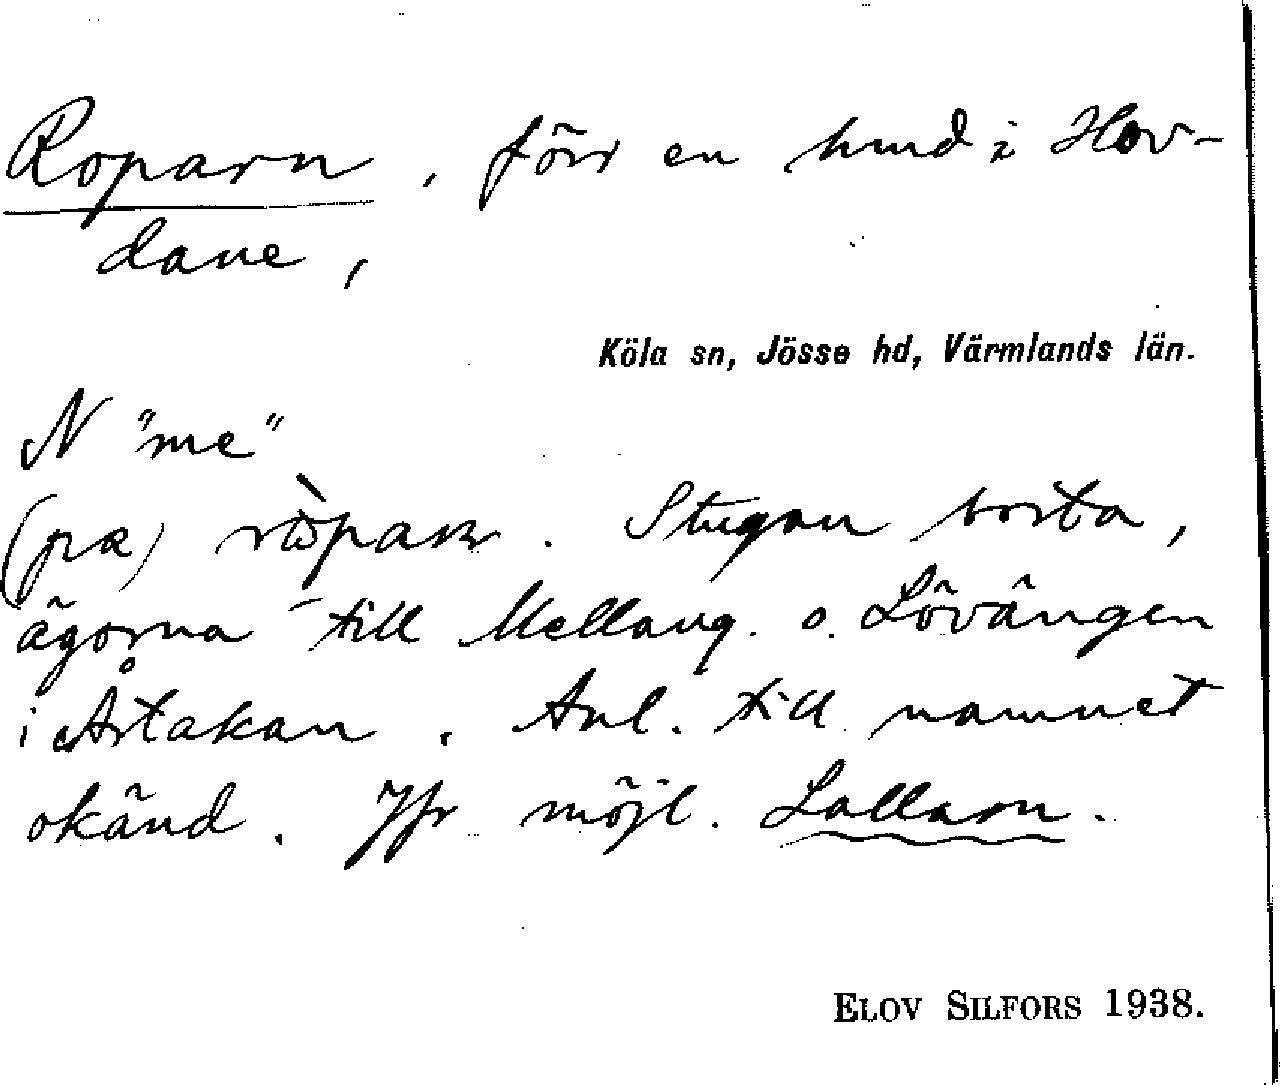 Roparn, förr en hmd i Hov-
dane,
Köla sn, Jösse hd, Värmlands län.
N "me"
(på) ròparn. Stugan borta,
ägorna till Mellang. o. Lövängen
i Årtakan. Anl. till namnet
okänd. Jfr möjl. Lallarn.
ELOV SILFORS 1938.